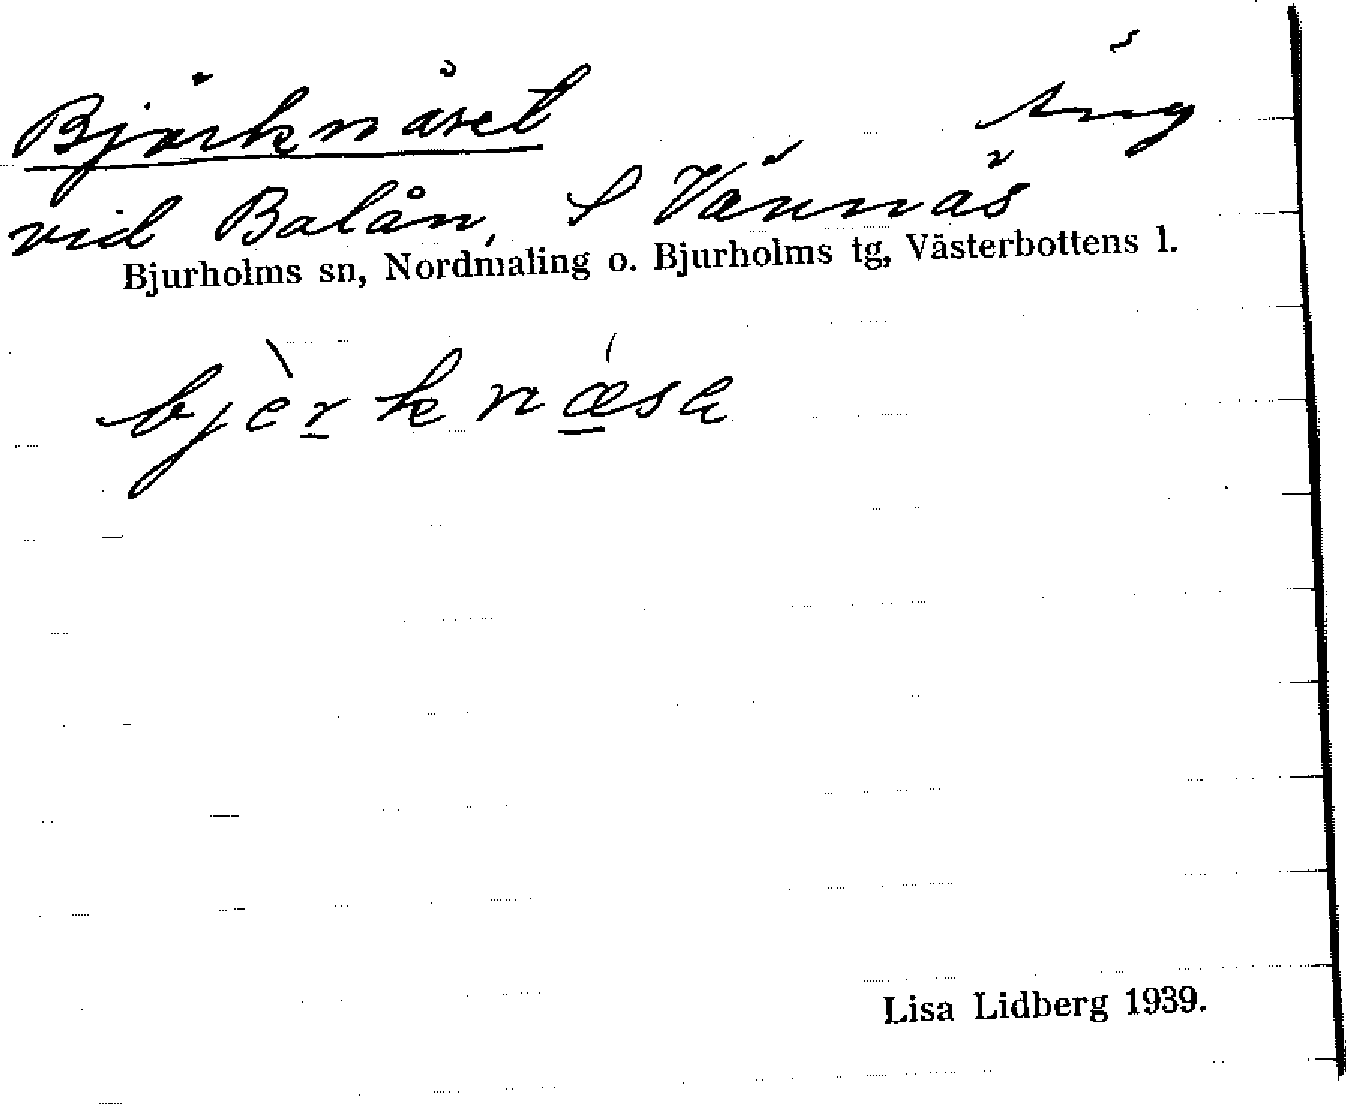 Björknäset Äng
vid Balån, S Vännäs
Bjurholms sn, Nordmaling o. Bjurholms tg, Västerbottens l.
bjèrknǽsa
Lisa Lidberg 1939.